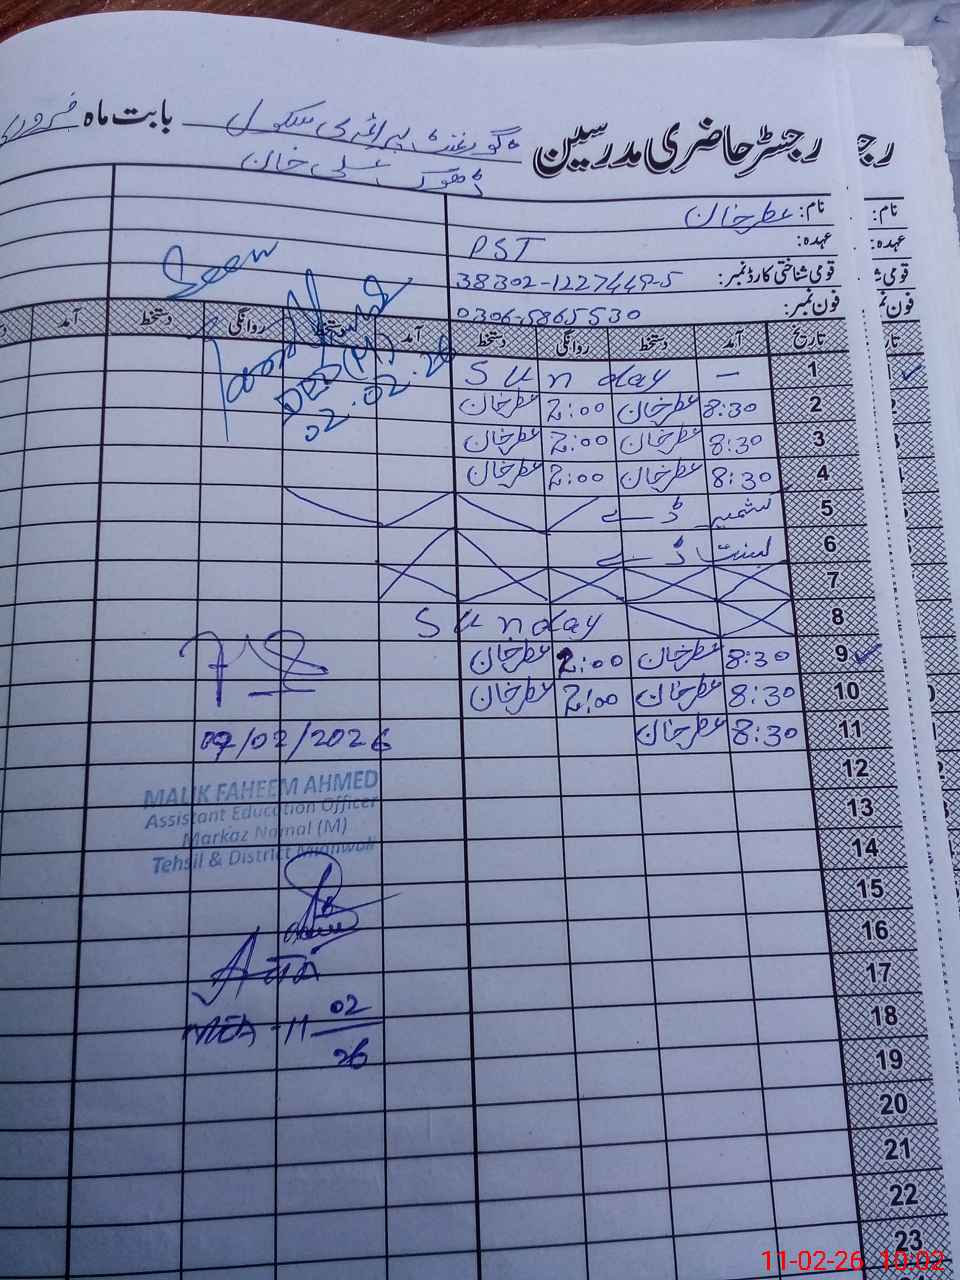 رجسٹر حاضری مدرسین گورنمنٹ پرائمری سکول ڈھوک علی خان بابت ماہ فروری
نام: عطر خان
عہدہ: PST
قومی شناختی کارڈ نمبر: 38302-1227449-5
فون نمبر: 0306-5865530
تاریخ آمد دستخط روانگی دستخط آمد دستخط روانگی دستخط آمد
1 - Sunday
2 8:30 عطر خان 2:00 عطر خان
3 8:30 عطر خان 2:00 عطر خان
4 8:30 عطر خان 2:00 عطر خان
5 کشمیر ڈے
6 بسنت ڈے
7
8 Sunday
9 8:30 عطر خان 2:00 عطر خان
10 8:30 عطر خان 2:00 عطر خان
11 8:30 عطر خان
12
13
14
15
16
17
18
19
20
21
22
23
Seen
02.02.26
09/02/2026
MALIK FAHEEM AHMED
Assistant Education Officer
Markaz Namal (M)
Tehsil & District Mianwali
MEA - 11 02 26
رجـ
نام:
عہدہ:
11-02-26 10:02